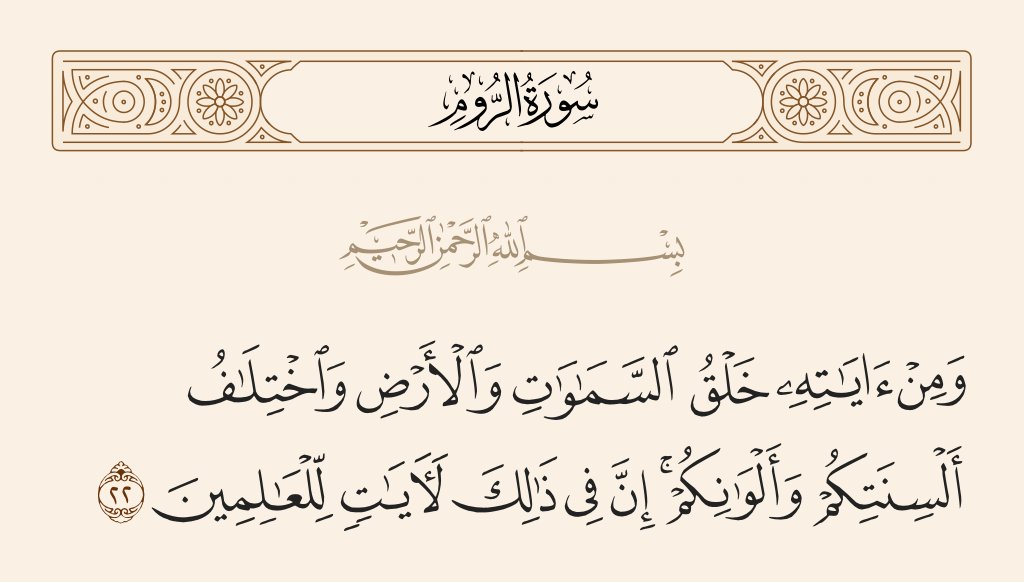 سُورَةُ الرُّومِ
بِسْمِ ٱللَّهِ ٱلرَّحْمَٰنِ ٱلرَّحِيمِ
وَمِنْ ءَايَـٰتِهِۦ خَلْقُ ٱلسَّمَـٰوَٰتِ وَٱلْأَرْضِ وَٱخْتِلَـٰفُ
أَلْسِنَتِكُمْ وَأَلْوَٰنِكُمْ ۚ إِنَّ فِى ذَٰلِكَ لَـَٔايَـٰتٍ لِّلْعَـٰلِمِينَ ٢٢